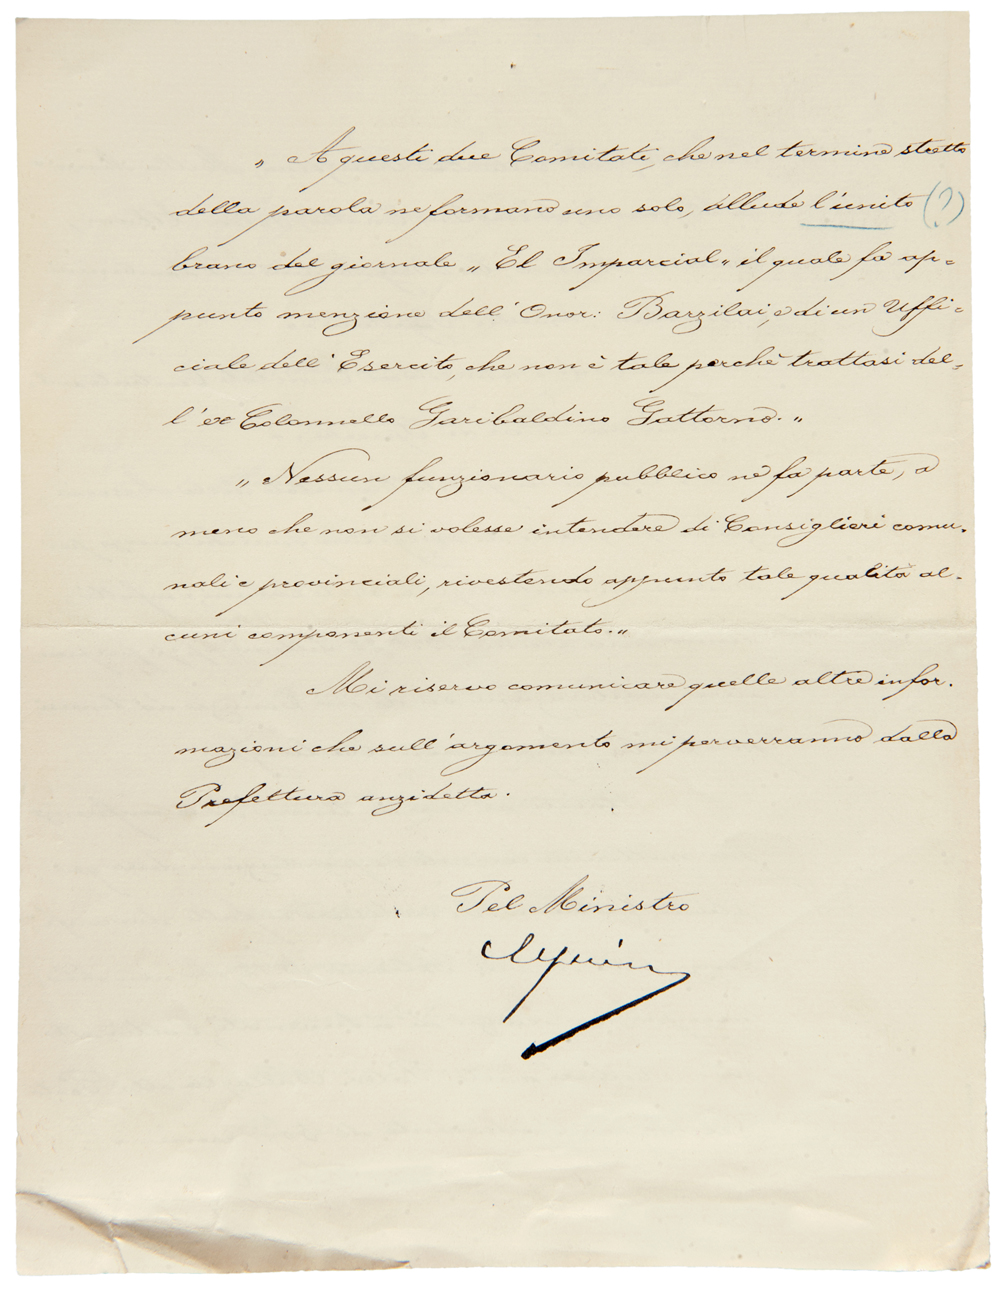 „ A questi due Comitati, che nel termine stretto
della parola ne formano uno solo, allude l'unito (?)
brano del giornale „ El Imparcial „ il quale fa ap-
punto menzione dell' Onor: Barzilai, e di un Uffi-
ciale dell' Esercito, che non è tale perchè trattasi del-
l' ex Colonnello Garibaldino Gattorno. „
„ Nessun funzionario pubblico ne fa parte, a
meno che non si volesse intendere di Consiglieri comu-
nali e provinciali, rivestendo appunto tale qualità al-
cuni componenti il Comitato. „
Mi riservo comunicare quelle altre infor-
mazioni che sull' argomento mi perverranno dalla
Prefettura anzidetta.
Pel Ministro